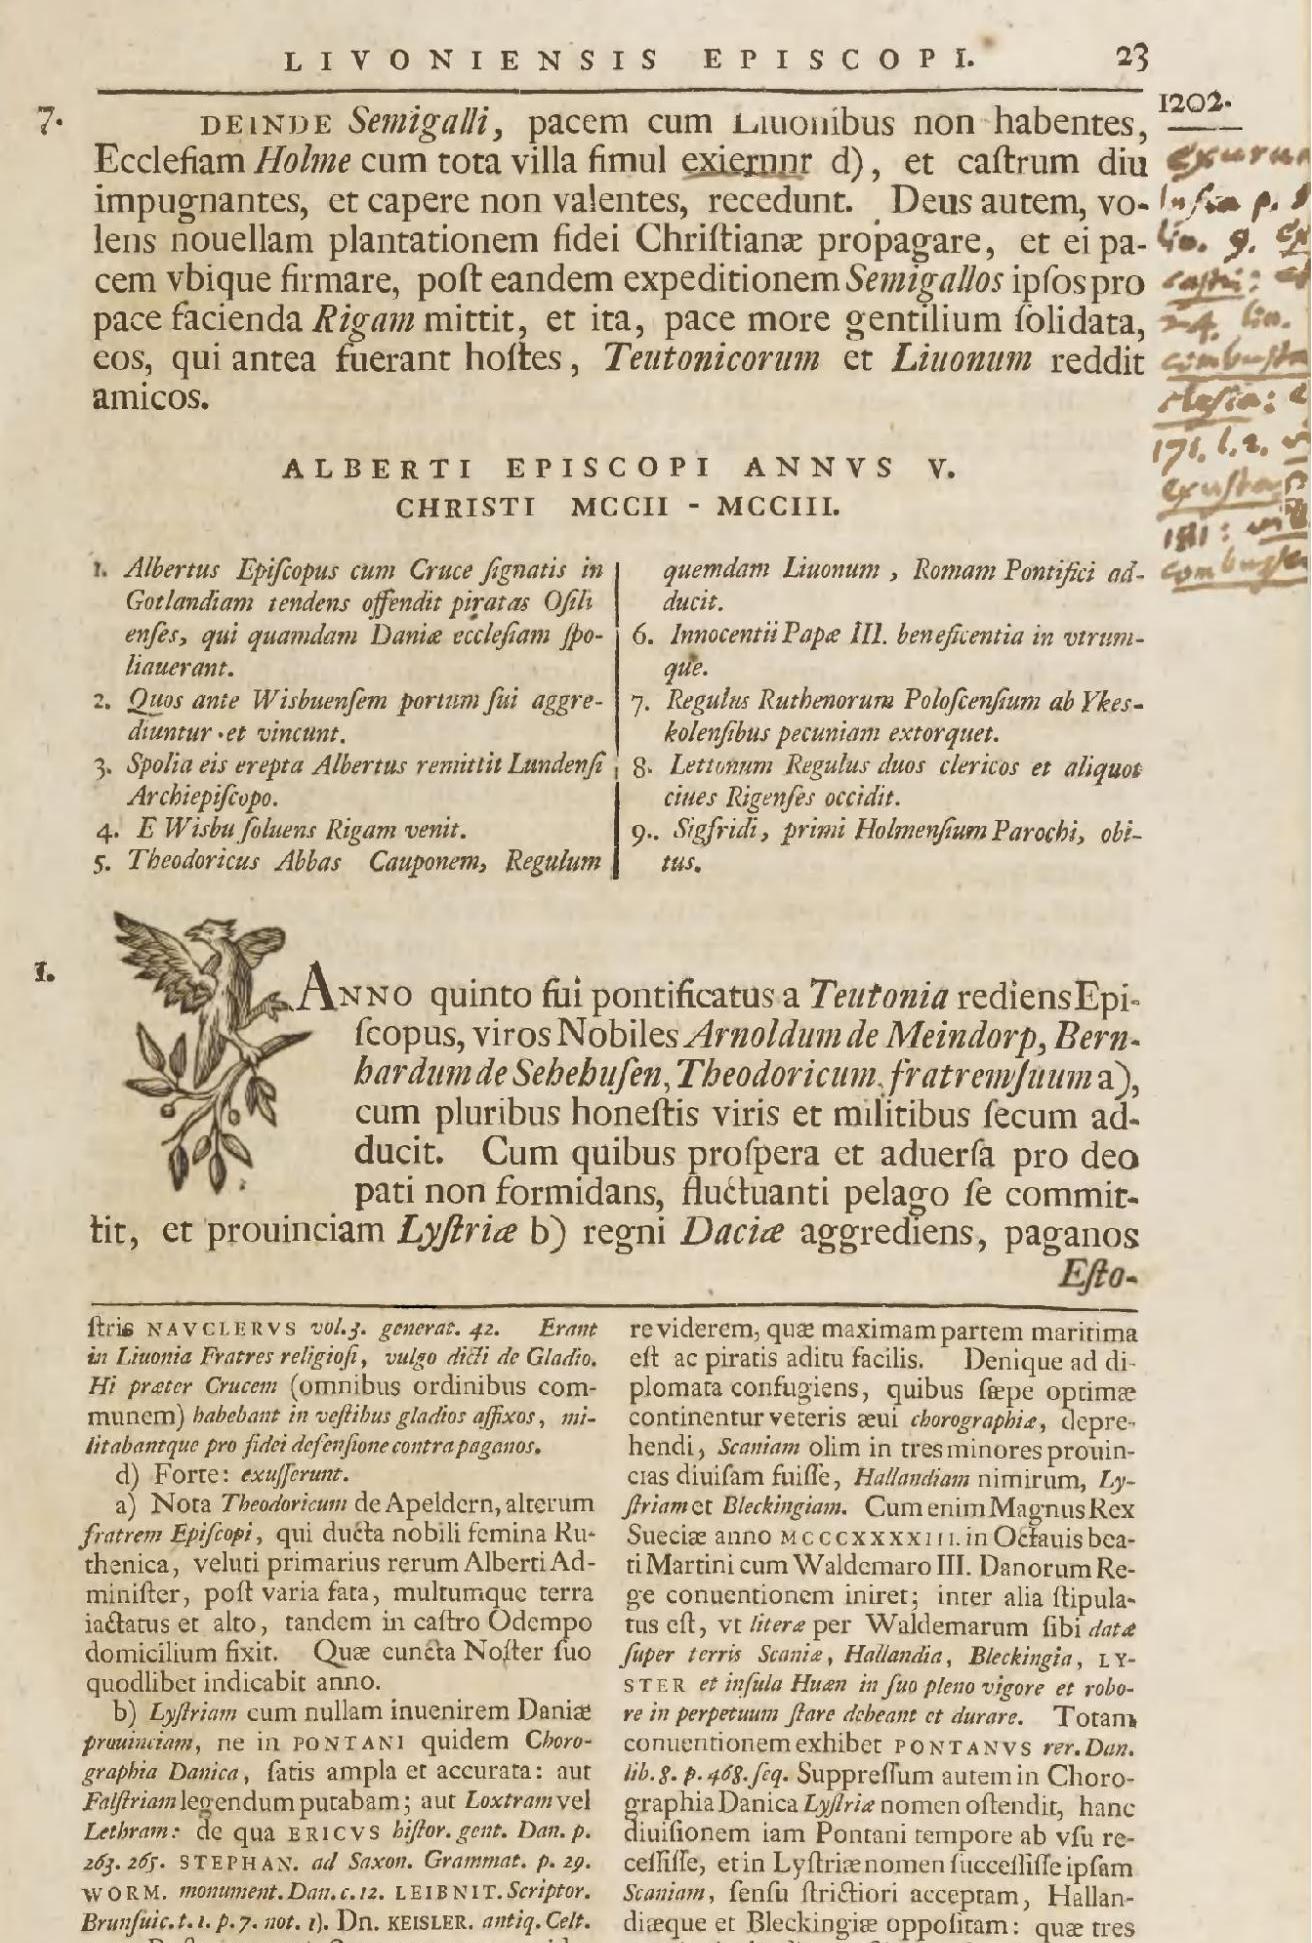 LIVONIENSIS EPISCOPI. 23
1202.
7. DEINDE Semigalli, pacem cum Liuonibus non habentes,
Eccleſiam Holme cum tota villa ſimul exierunt d), et caſtrum diu
impugnantes, et capere non valentes, recedunt. Deus autem, vo-
lens nouellam plantationem fidei Chriſtianæ propagare, et ei pa-
cem vbique firmare, poſt eandem expeditionem Semigallos ipſos pro
pace facienda Rigam mittit, et ita, pace more gentilium ſolidata,
eos, qui antea fuerant hoſtes, Teutonicorum et Liuonum reddit
amicos.
p.
9.
caſtri:
24. lin.
combuſta
cleſia:
171. l. 2.
exuſta
181:
ALBERTI EPISCOPI ANNVS V.
CHRISTI MCCII - MCCIII.
1. Albertus Epiſcopus cum Cruce ſignatis in
Gotlandiam tendens offendit piratas Oſili
enſes, qui quamdam Daniæ eccleſiam ſpo-
liauerant.
2. Quos ante Wisbuenſem portum ſui aggre-
diuntur et vincunt.
3. Spolia eis erepta Albertus remittit Lundenſi
Archiepiſcopo.
4. E Wisbu ſoluens Rigam venit.
5. Theodoricus Abbas Cauponem, Regulum
quemdam Liuonum, Romam Pontifici ad-
ducit.
6. Innocentii Papæ III. beneficentia in vtrum-
que.
7. Regulus Ruthenorum Poloſcenſium ab Ykes-
kolenſibus pecuniam extorquet.
8. Lettonum Regulus duos clericos et aliquot
ciues Rigenſes occidit.
9.. Sigfridi, primi Holmenſium Parochi, obi-
tus.
1. ANNO quinto ſui pontificatus a Teutonia rediens Epi-
ſcopus, viros Nobiles Arnoldum de Meindorp, Bern-
hardum de Sehehuſen, Theodoricum, fratrem ſuum a),
cum pluribus honeſtis viris et militibus ſecum ad-
ducit. Cum quibus proſpera et aduerſa pro deo
pati non formidans, fluctuanti pelago ſe commit-
tit, et prouinciam Lyſtriæ b) regni Daciæ aggrediens, paganos
Eſto-
ſtris NAVCLERVS vol. 3. generat. 42. Erant
in Liuonia Fratres religioſi, vulgo dicti de Gladio.
Hi præter Crucem (omnibus ordinibus com-
munem) habebant in veſtibus gladios affixos, mi-
litabantque pro fidei defenſione contra paganos.
d) Forte: exuſſerunt.
a) Nota Theodoricum de Apeldern, alterum
fratrem Epiſcopi, qui ducta nobili femina Ru-
thenica, veluti primarius rerum Alberti Ad-
miniſter, poſt varia fata, multumque terra
iactatus et alto, tandem in caſtro Odempo
domicilium fixit. Quæ cuncta Noſter ſuo
quodlibet indicabit anno.
b) Lyſtriam cum nullam inuenirem Daniæ
prouinciam, ne in PONTANI quidem Choro-
graphia Danica, ſatis ampla et accurata: aut
Falſtriam legendum putabam; aut Loxtram vel
Lethram: de qua ERICVS hiſtor. gent. Dan. p.
263. 265. STEPHAN. ad Saxon. Grammat. p. 29.
WORM. monument. Dan. c. 12. LEIBNIT. Scriptor.
Brunſuic. t. 1. p. 7. not. 1). Dn. KEISLER. antiq. Celt.
re viderem, quæ maximam partem maritima
eſt ac piratis aditu facilis. Denique ad di-
plomata confugiens, quibus ſæpe optimæ
continentur veteris æui chorographiæ, depre-
hendi, Scaniam olim in tres minores prouin-
cias diuiſam fuiſſe, Hallandiam nimirum, Ly-
ſtriam et Bleckingiam. Cum enim Magnus Rex
Sueciæ anno MCCCXXXXIII. in Octauis bea-
ti Martini cum Waldemaro III. Danorum Re-
ge conuentionem iniret; inter alia ſtipula-
tus eſt, vt literæ per Waldemarum ſibi datæ
ſuper terris Scaniæ, Hallandia, Bleckingia, LY-
STER et inſula Huæn in ſuo pleno vigore et robo-
re in perpetuum ſtare debeant et durare. Totam
conuentionem exhibet PONTANVS rer. Dan.
lib. 8. p. 468. ſeq. Suppreſſum autem in Choro-
graphia Danica Lyſtriæ nomen oſtendit, hanc
diuiſionem iam Pontani tempore ab vſu re-
ceſſiſſe, et in Lyſtriæ nomen ſucceſſiſſe ipſam
Scaniam, ſenſu ſtrictiori acceptam, Hallan-
diæque et Bleckingiæ oppoſitam: quæ tres